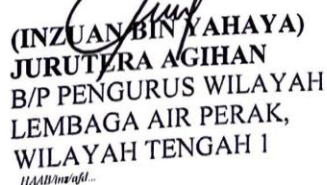 (INZUAN BIN YAHAYA)
JURUTERA AGIHAN
B/P PENGURUS WILAYAH
LEMBAGA AIR PERAK,
WILAYAH TENGAH 1
HAAB/inz/afd...